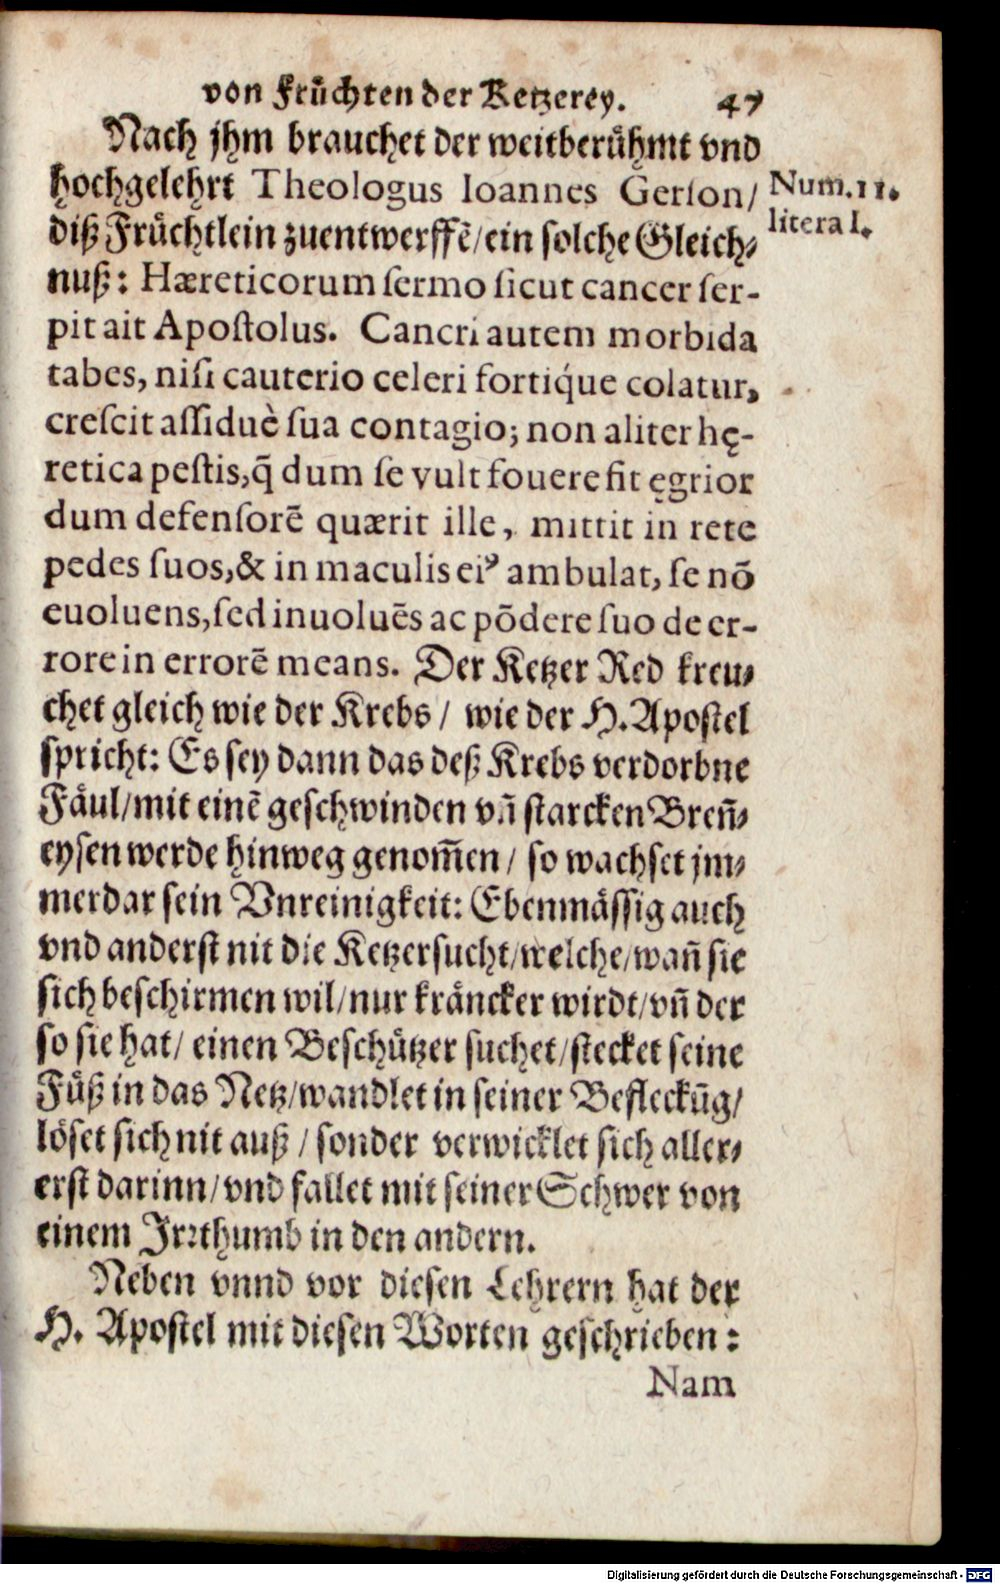 von Früchten der Ketzerey. 47
Nach jhm brauchet der weitberühmt vnd
hochgelehrt Theologus Ioannes Gerſon/
Num. 11.
litera I.
diß Früchtlein zuentwerffē/ein ſolche Gleich-
nuß: Hæreticorum ſermo ſicut cancer ſer-
pit ait Apoſtolus. Cancri autem morbida
tabes, niſi cauterio celeri fortiq́ue colatur,
creſcit aſſiduè ſua contagio; non aliter hę-
retica peſtis,q̄ dum ſe vult fouere fit ęgrior
dum defenſorē quærit ille, mittit in rete
pedes ſuos,& in maculis eiꝰ ambulat, ſe nō
euoluens,ſed inuoluēs ac pōdere ſuo de er-
rore in errorē means. Der Ketzer Red kreu-
chet gleich wie der Krebs / wie der H. Apoſtel
ſpricht: Es ſey dann das deß Krebs verdorbne
Fäul/mit einē geſchwinden vn̄ ſtarcken Bren̄-
eyſen werde hinweg genom̄en / ſo wachſet jm-
merdar ſein Vnreinigkeit: Ebenmäſſig auch
vnd anderſt nit die Ketzerſucht/welche/wan̄ ſie
ſich beſchirmen wil/nur kräncker wirdt/vn̄ der
ſo ſie hat/ einen Beſchützer ſuchet/ſtecket ſeine
Füß in das Netz/wandlet in ſeiner Befleckūg/
löſet ſich nit auß / ſonder verwicklet ſich aller-
erſt darinn/vnd fallet mit ſeiner Schwer von
einem Irꝛthumb in den andern.
Neben vnnd vor dieſen Lehrern hat der
H. Apoſtel mit dieſen Worten geſchrieben:
Nam
Digitalisierung gefördert durch die Deutsche Forschungsgemeinschaft - DFG